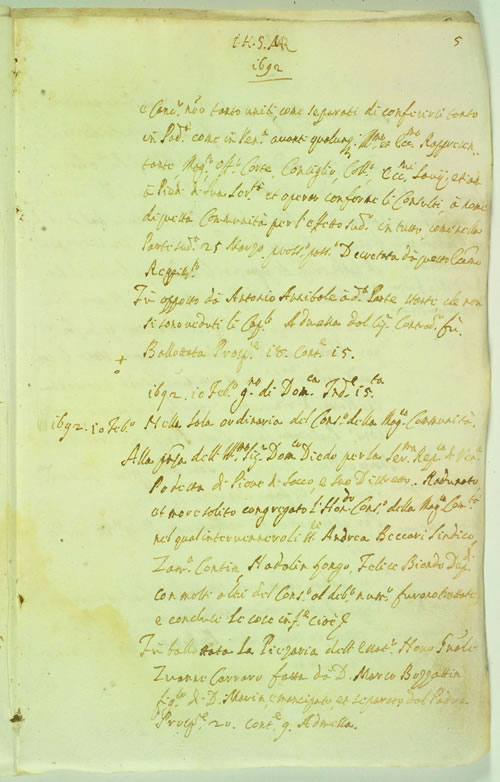 I.H.S. MR
5
1692
e Canc.º non tanto uniti, come separati di conferirsi tanto
in Pad.ª come in Ven.ª avanti qualunq; Ill.mo et Ecc.mo Rappresen-
tante, Mag.to Off.º Corte, Consiglio, Coll.º Ecc.mi Savij, et anco
à Piedi di Sua Ser.tà et operar conforme li Consulti, à nome
di questa Communità per l'effetto sud.º in tutto, come nella
Parte sud.ª 25 Marzo pross.º pass.º Decretata dà questo
Fù opposto dà Antonio Annibale à d.ª Parte, stante che non
si sono veduti li Cap.li Admessa dal Cons.º fù
Ballottata Pros.e 18. Cont.e 15.
1692. 10 Feb.º g.no di Dom.ca Ind.e 15.ta
1692. 10 Feb.º Nella Sala ordinaria del Cons.º della Mag.ca Communità.
Alla pnza dell'Ill.mo Sig.r Dom.co Diedo per la Ser.ma Rep.ca di Ven.ª
Podestà di Piove di Sacco, e suo Distretto. Radunato,
et more solito congregato l'Hon.do Cons.º della Mag.ca Com.tà
nel qual intervennero li Andrea Beccari Sindico,
Zan Contin, Nadalin Longo, Felice Biondo Dep.ti
con molti altri del Cons.º al deb.º num.º furono trattate
e concluse le cose inf.e cioè
Fù ballottata la Piezaria dell'
Zuanne Carraro fatta dà D. Marco Bozzattin
fig.lo di D. Marin emancipato, et separato dal Padre
Pros.e 20. cont.e 9. Admessa.